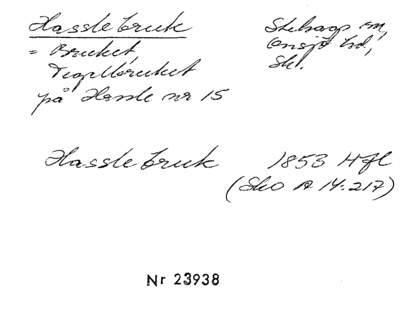 Hasslebruk
= Bruket,
Tegelbruket
på Hassle nr 15
sn,
Onsjö hd,
Sk.
Hasslebruk 1853 Hfl
(SkO A 14:217)
Nr 23938